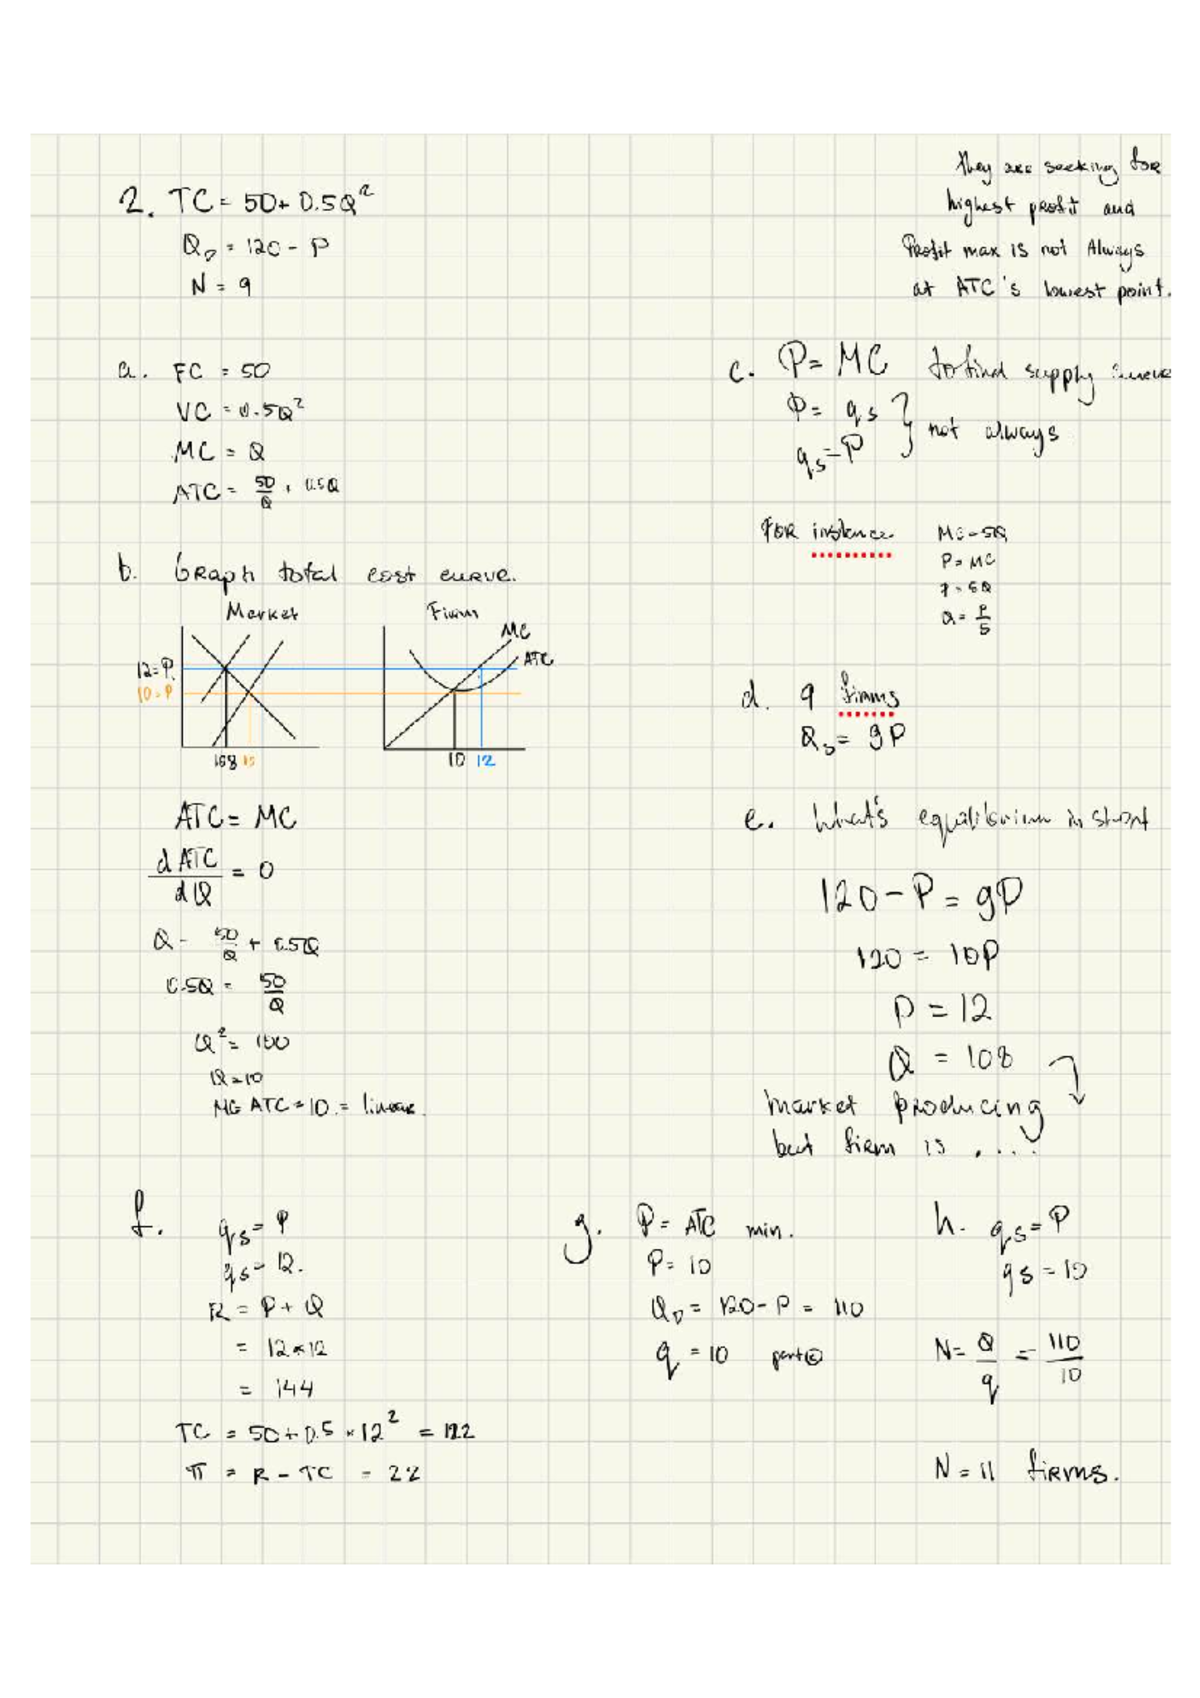 they are seeking for
highest profit and
Profit max is not Always
at ATC's lowest point.
2. TC = 50 + 0.5Q²
Q_D = 120 - P
N = 9
a. FC = 50
VC = 0.5Q²
MC = Q
ATC = 50/Q + 0.5Q
b. Graph total cost curve.
Market
Firm
MC
ATC
12 = P
10 = P
108
10 12
ATC = MC
dATC/dQ = 0
Q = 50/Q + 0.5Q
0.5Q = 50/Q
Q² = 100
Q = 10
ATC = 10 = linear.
c. P = MC to find supply curve
P = qs
qs = P
not always
FOR instance
MC = 5Q
P = MC
P = 5Q
Q = P/5
d. 9 firms
Qs = 9P
e. What's equilibrium in short
120 - P = 9P
120 = 10P
P = 12
Q = 108
market producing
but firm is ....
f. qs = P
qs = 12.
R = P + Q
= 12 * 12
= 144
TC = 50 + 0.5 * 12² = 122
π = R - TC = 22
g. P = ATC min.
P = 10
Q_D = 120 - P = 110
q = 10 part ©
h. qs = P
qs = 10
N = Q/q = 110/10
N = 11 firms.